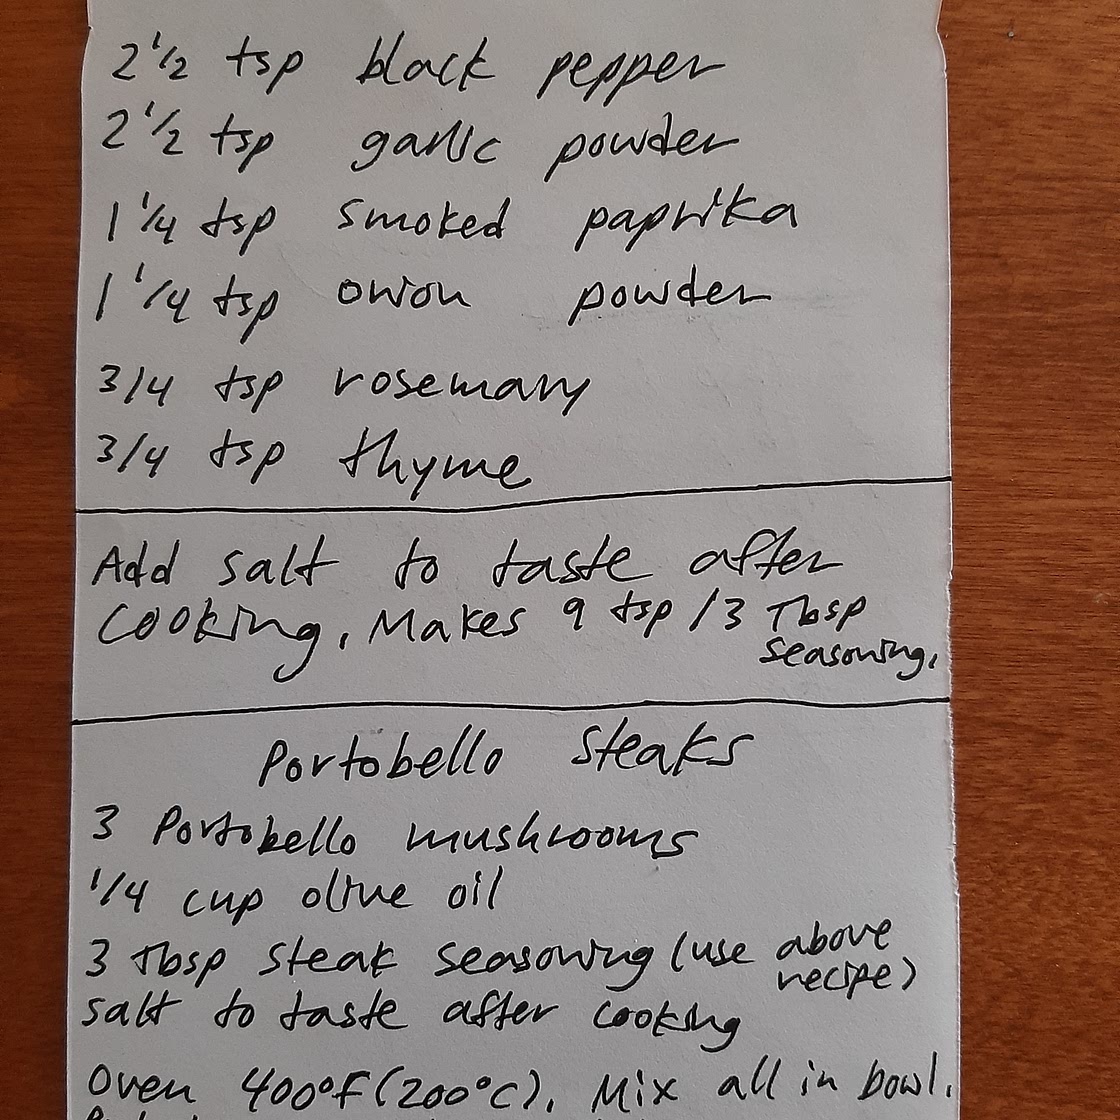 2 1/2 tsp black pepper
2 1/2 tsp garlic powder
1 1/4 tsp smoked paprika
1 1/4 tsp onion powder
3/4 tsp rosemary
3/4 tsp thyme
Add salt to taste after
cooking. Makes 9 tsp / 3 Tbsp
seasoning.
Portobello Steaks
3 Portobello mushrooms
1/4 cup olive oil
3 Tbsp steak seasoning (use above
recipe)
salt to taste after cooking
Oven 400°F (200°C). Mix all in bowl.